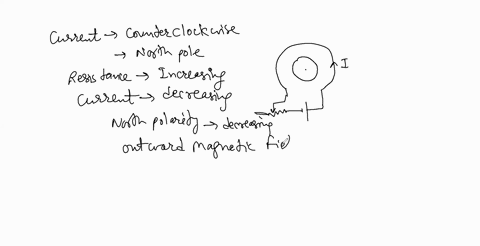 Current → Counterclockwise
→ North pole
Resistance → Increasing
Current → decreasing
North polarity → decreasing
outward magnetic fie
I